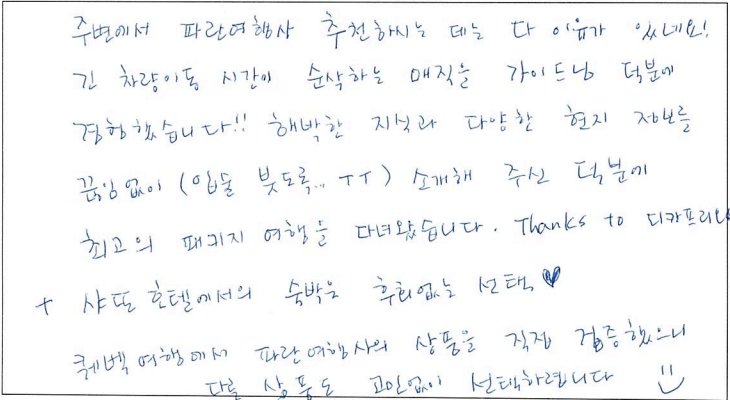 주변에서 파란여행사 추천하시는 데는 다 이유가 있네요!
긴 차량이동 시간이 순삭하는 매직을 가이드님 덕분에
경험했습니다!! 해박한 지식과 다양한 현지 정보를
끊임없이 (입술 붓도록.. TT) 소개해 주신 덕분에
최고의 패키지 여행을 다녀왔습니다. Thanks to 디카프리오
+ 샤또 호텔에서의 숙박은 후회없는 선택♥
퀘벡여행에서 파란여행사의 상품을 직접 검증했으니
다른 상품도 고민없이 선택하렵니다 :)